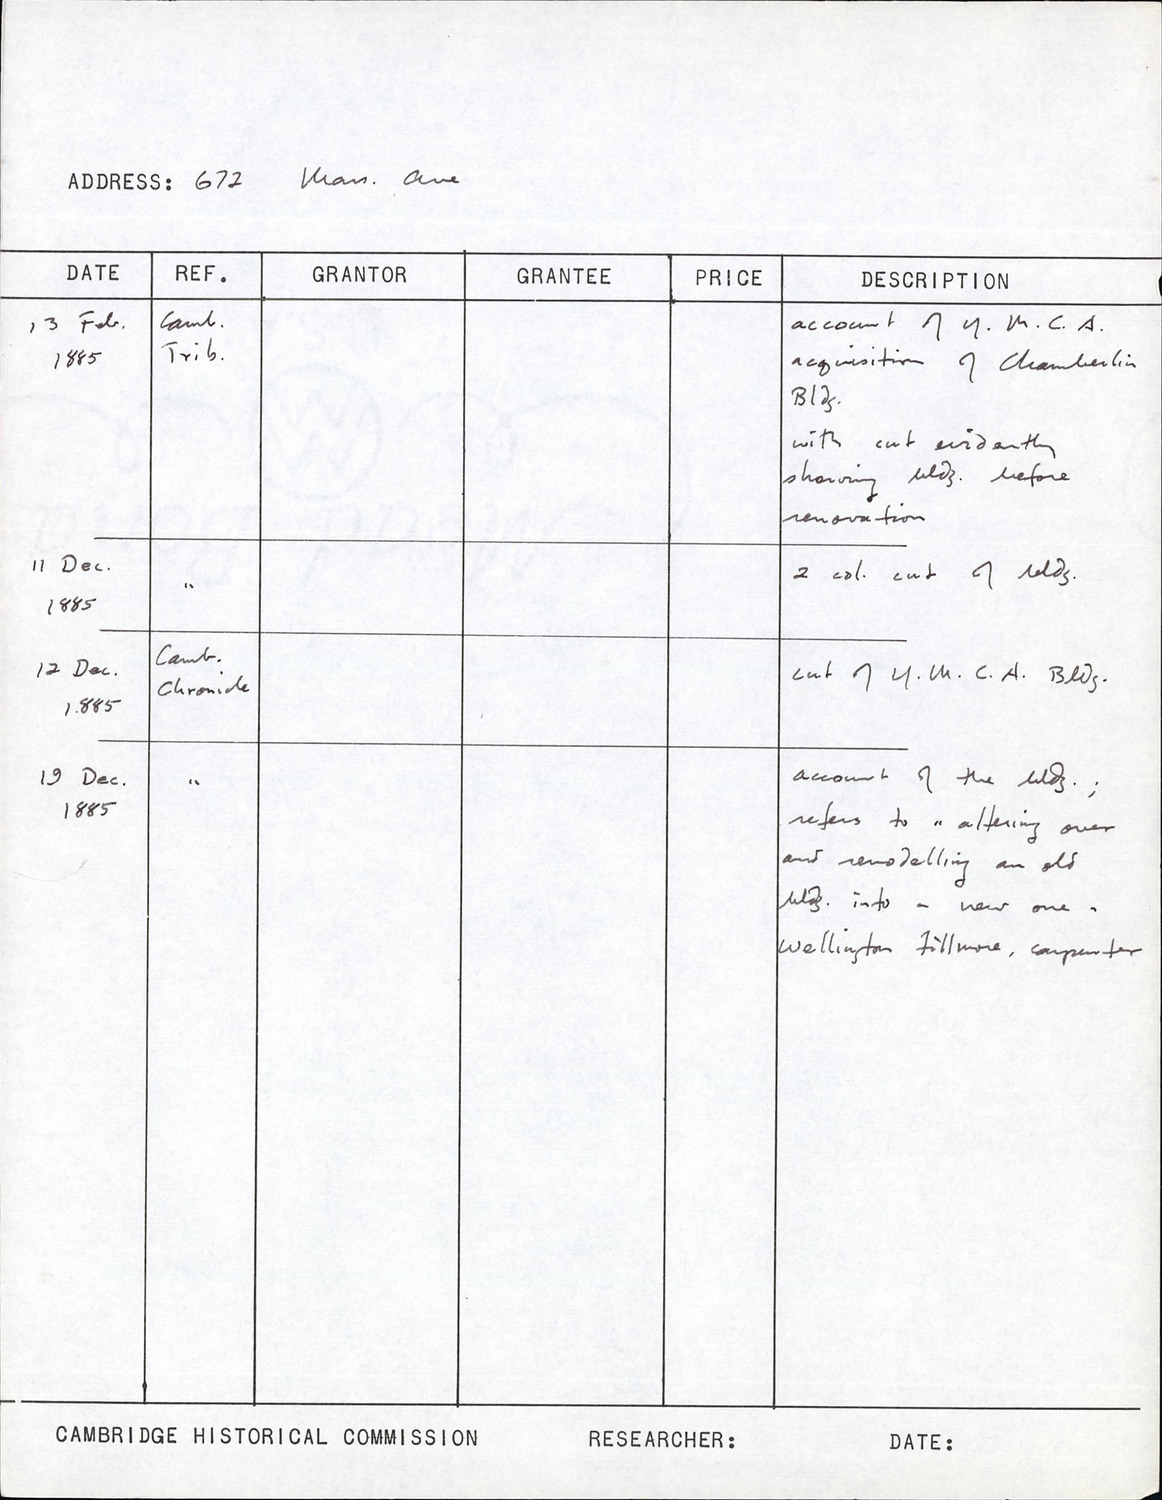 ADDRESS: 672 Mass. Ave
DATE REF. GRANTOR GRANTEE PRICE DESCRIPTION
13 Feb. Camb. account of Y.M.C.A.
1885 Trib. acquisition of Chamberlin
Bldg.
with cut evidently
showing bldg. before
renovation
11 Dec. " 2 col. cut of bldg.
1885
12 Dec. Camb. cut of Y.M.C.A. Bldg.
1885 Chronicle
19 Dec. " account of the bldg.;
1885 refers to "altering over
and remodelling an old
bldg. into a new one"
Wellington Fillmore, carpenter
CAMBRIDGE HISTORICAL COMMISSION RESEARCHER: DATE: